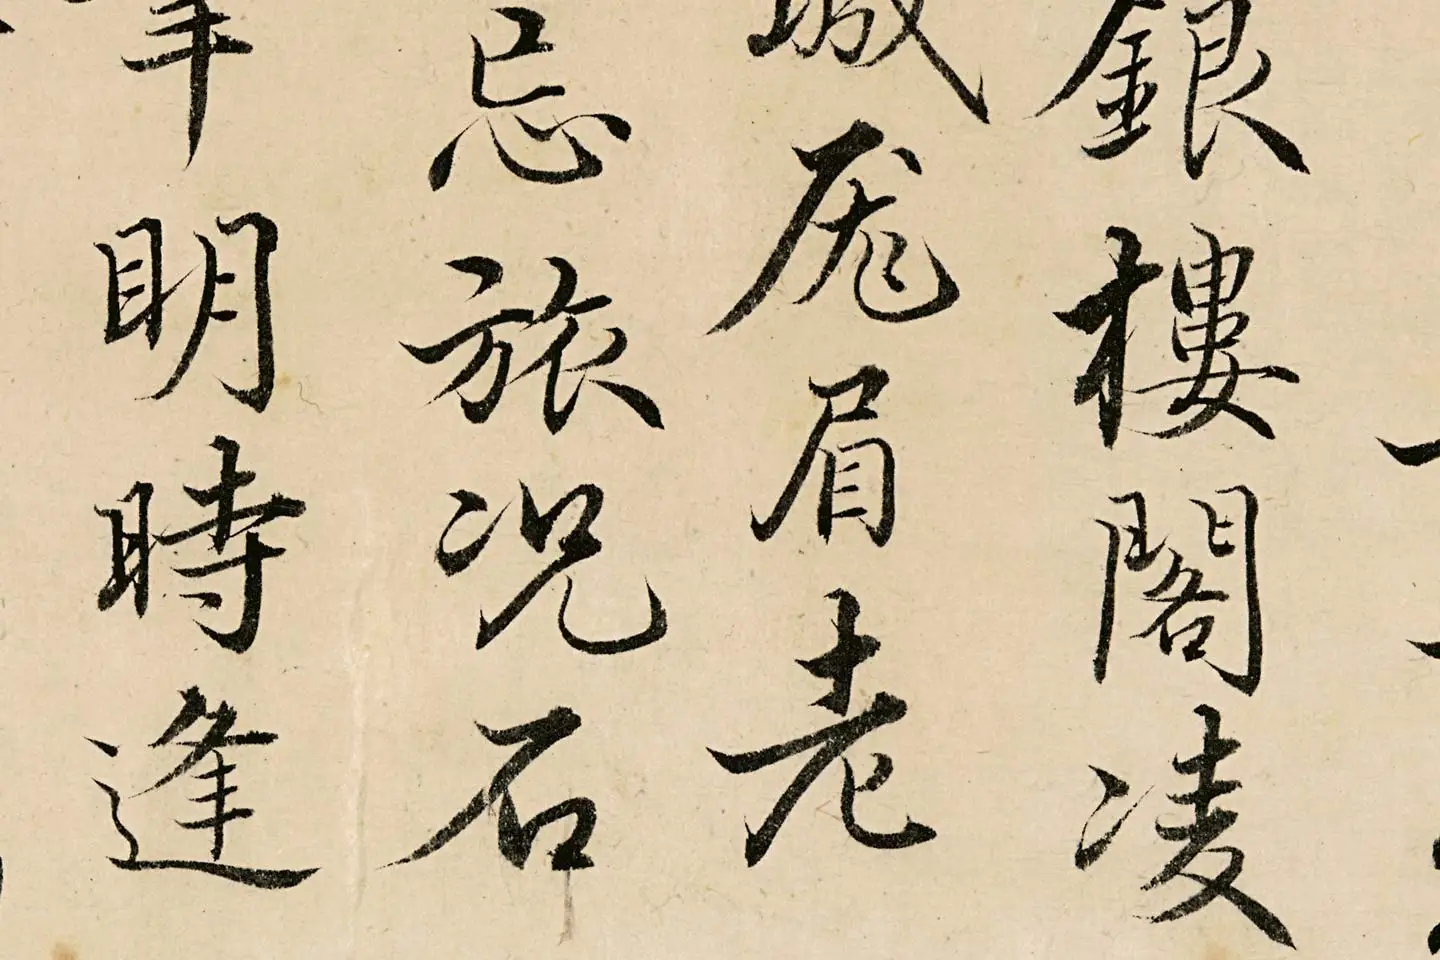 銀樓閣凌
厖眉老
忌旅况石
明時逢